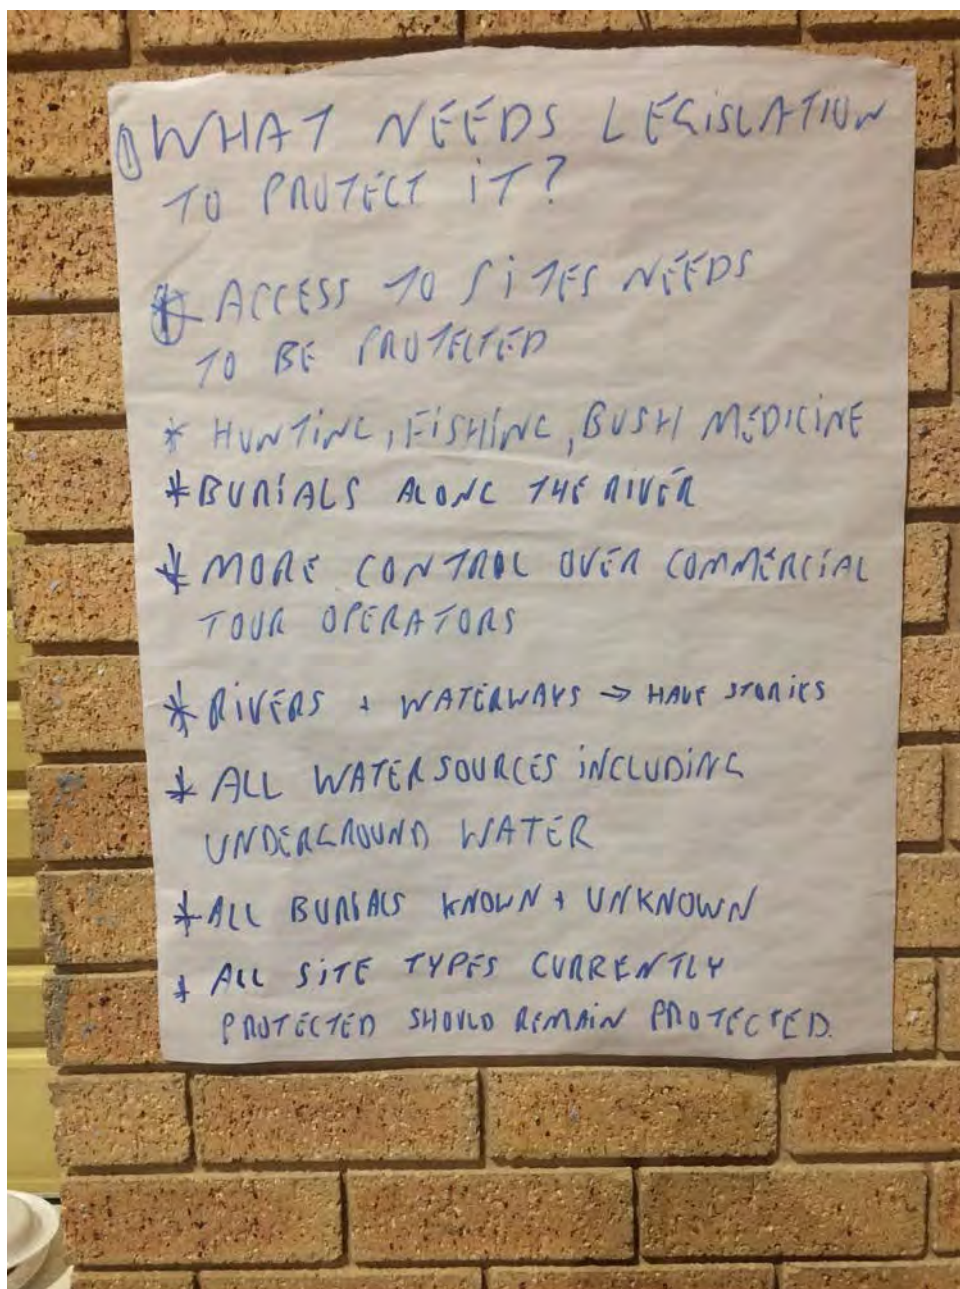 ① WHAT NEEDS LEGISLATION
TO PROTECT IT?
* ACCESS TO SITES NEEDS
TO BE PROTECTED
* HUNTING, FISHING, BUSH MEDICINE
* BURIALS ALONG THE RIVER
* MORE CONTROL OVER COMMERCIAL
TOUR OPERATORS
* RIVERS + WATERWAYS → HAVE STORIES
* ALL WATER SOURCES INCLUDING
UNDERGROUND WATER
* ALL BURIALS KNOWN + UNKNOWN
* ALL SITE TYPES CURRENTLY
PROTECTED SHOULD REMAIN PROTECTED.